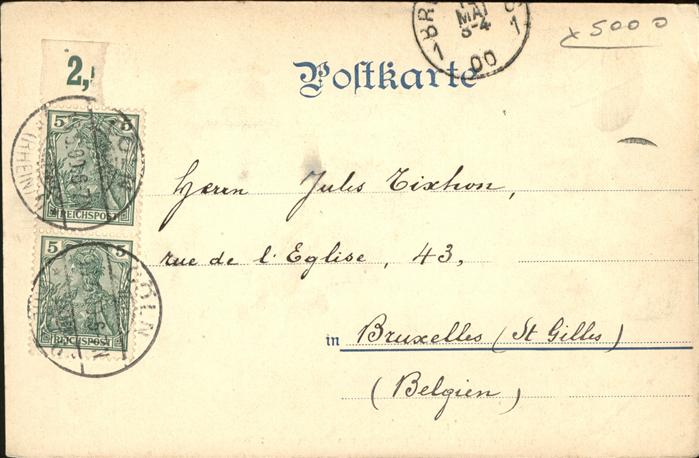 x 5000
MAI
3-4
00
1 1
Postkarte
2,
5
REICHSPOST
5 5
REICHSPOST
KÖLN
Herrn Jules Tixhon,
rue de l'Eglise, 43,
in Bruxelles (St Gilles)
(Belgien)